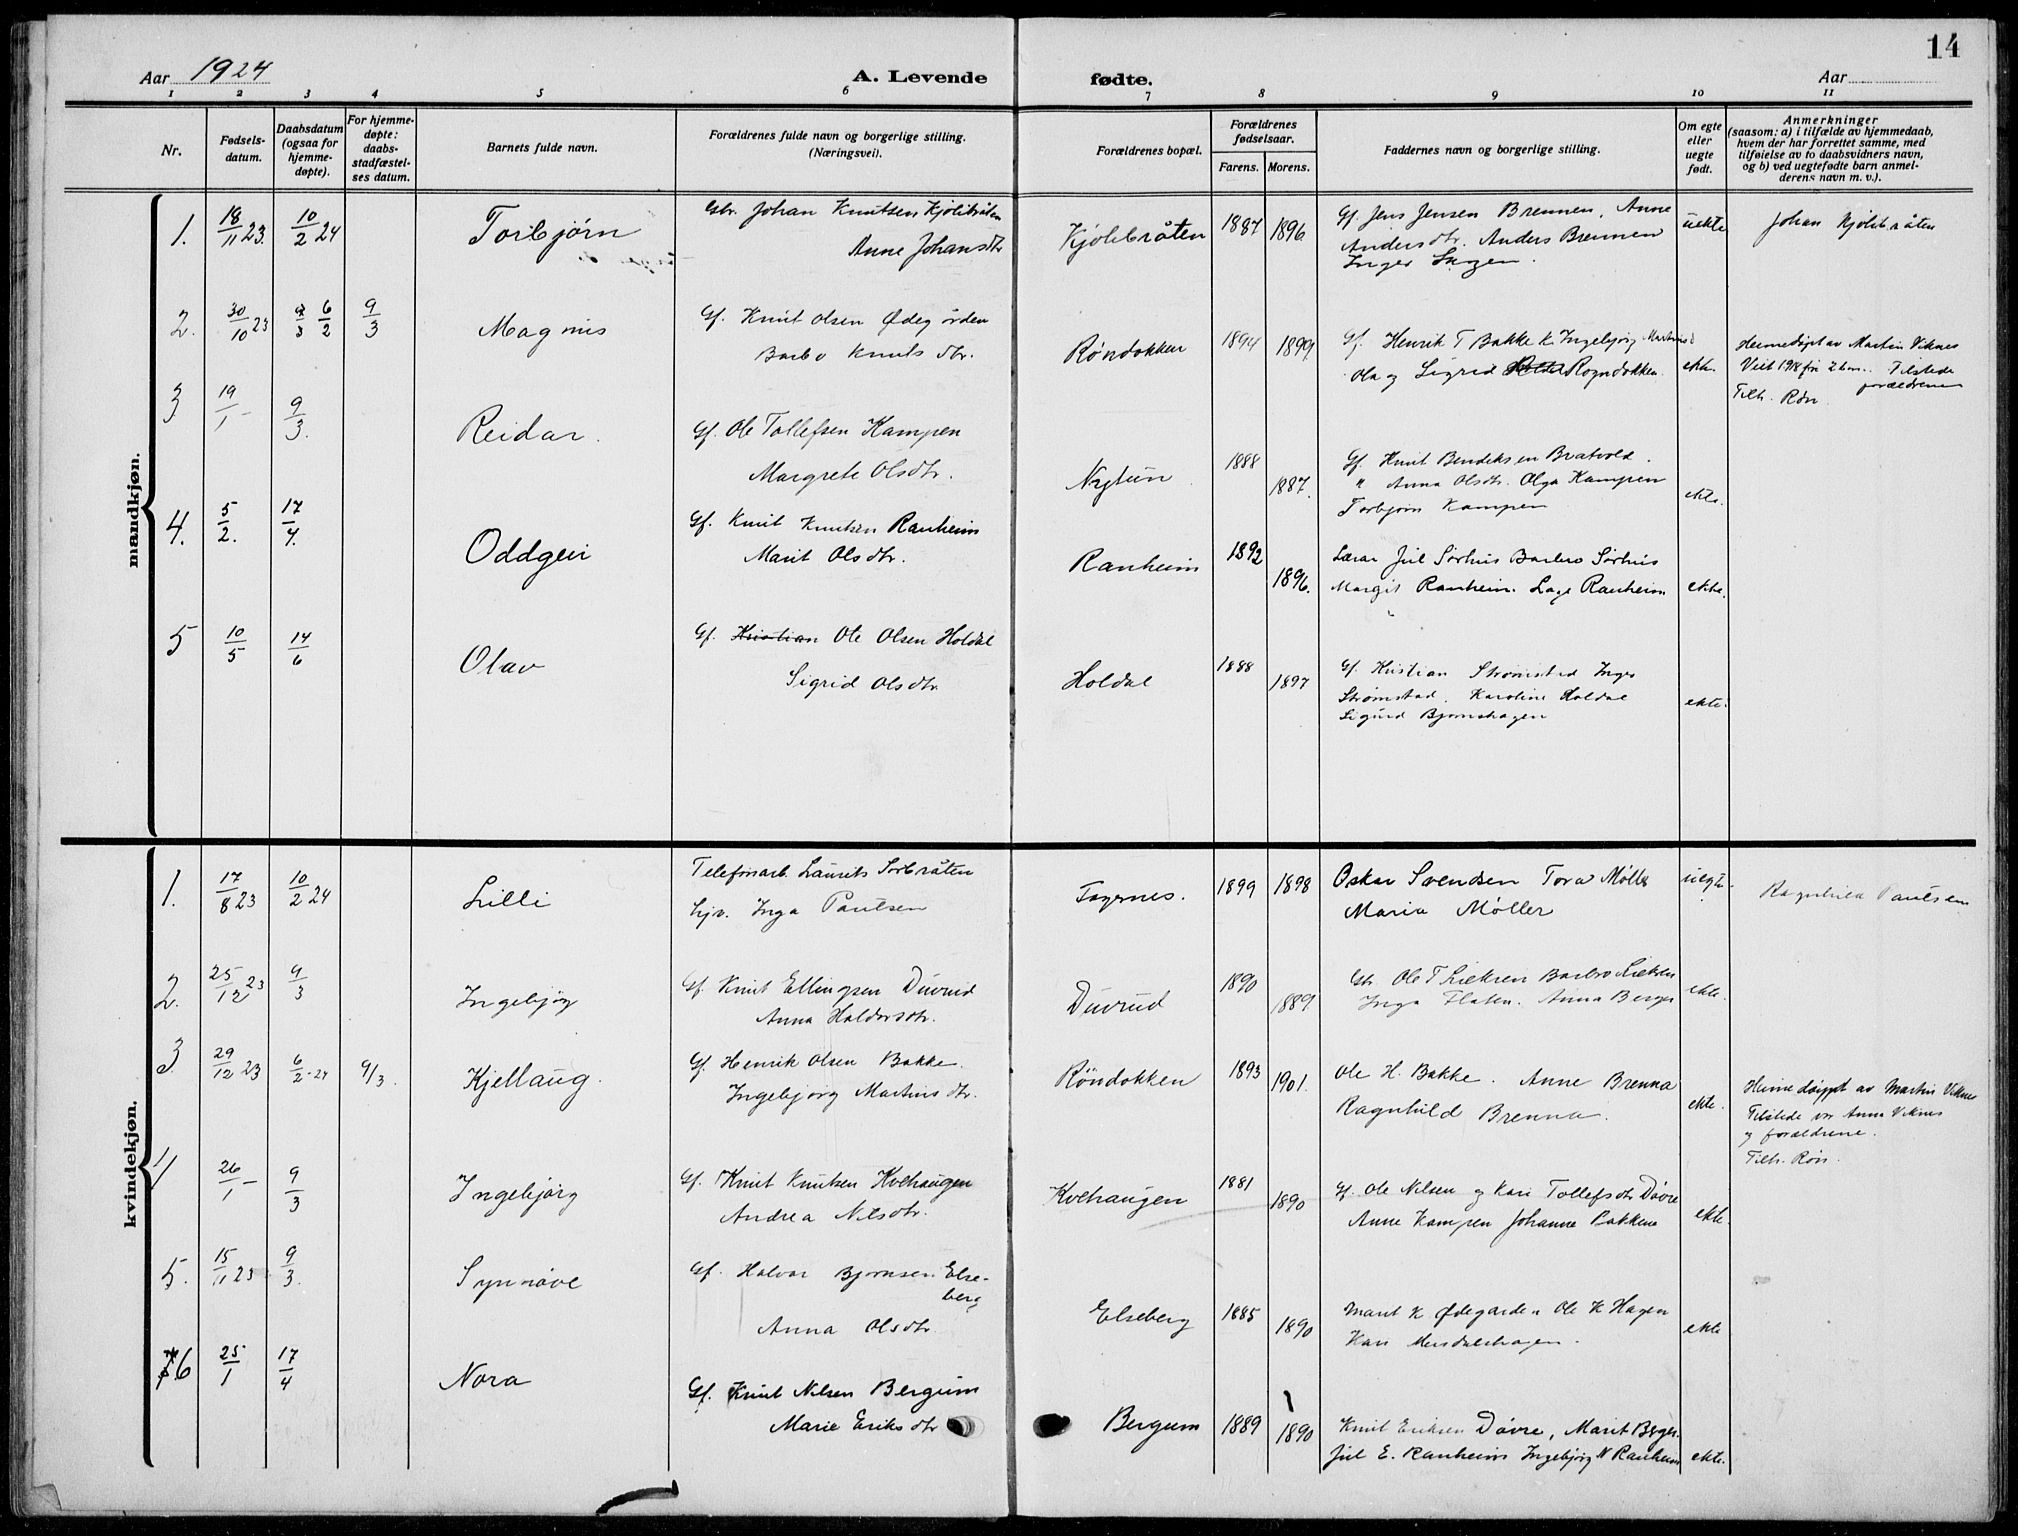 14
Aar 1924
A. Levende fødte.
Aar
1 2 3 4 5 6 7 8 9 10 11
Nr.
Fødsels-
datum.
Daabsdatum
(ogsaa for
hjemme-
døpte).
For hjemme-
døpte:
daabs-
stadfæstel-
ses datum.
Barnets fulde navn.
Forældrenes fulde navn og borgerlige stilling.
(Næringsvei).
Forældrenes bopæl.
Forældrenes
fødselsaar.
Farens. Morens.
Faddernes navn og borgerlige stilling.
Om egte
eller
uegte
født.
Anmerkninger
(saasom: a) i tilfælde av hjemmedaab,
hvem der har forrettet samme, med
tilføielse av to daabsvidners navn,
og b) ved uegtefødte barn anmel-
derens navn m. v.).
mandkjøn.
1. 18/11 23. 10/2 24 Torbjørn
Gbr. Johan Knutsen Kjölibråten
Anne Johansdtr
Kjölibråten 1887 1896
Gf. Jens Jensen Brennen, Anne
Andersdtr. Anders Brennen
Inger
uekte
Johan Kjölibråten
2. 30/10 23 9/3 6/2 9/3 Magnus
Gf. Knut Olsen Ødegården
Barbo Knutsdtr.
Røndokken 1894 1899
Gf. Henrik T Bakke k Ingebjørg Martinsd
Ola og Sigrid Rogndokken
ekte.
Hjemmedøpt av Martin Viknes
Tilstede
forældrene
Tilh. Røn
3 19/1 - 9/3. Reidar.
Gf. Ole Tollefsen Kampen
Margrete Olsdtr.
Nytun 1888 1887.
Gf. Knut Bendiksen Bratvold.
" Anna Olsdtr. Olga Kampen
Torbjørn Kampen
ekte.
4. 5/2. 17/4. Oddgeir
Gf. Knut Knutsen Ranheim
Marit Olsdtr.
Ranheim 1892 1896.
Lærar Jul Sörhus Barbro Sörhus
Margit Ranheim. Lage Ranheim
ekte.
5 10/5 14/6 Olav
Gf. Kristian Ole Olsen Holdal
Sigrid Olsdtr
Holdal 1888 1897
Gf Kristian Strømstad Inger
Strømstad. Karoline Holdal
Sigurd Bjørnshagen
ekte.
kvindekjøn.
1. 17/8 23 10/2 24 Lilli
Telefonarb. Laurits Sorbråten
Inga Paulsen
Fagernes. 1899 1898
Oskar Svendsen Tora Møller
Maria Møller
uegte.
Ragnhild Paulsen
2. 25/12 23 9/3 Ingebjøg
Gf. Knut Ellingsen Duvrud
Anna Haldorsdtr.
Duvrud 1890 1889
Gbr Ole T Lieksen Barbro Lieksen
Inga Flaten. Anna Berger
ekte.
3. 29/12 23 6/2 - 24 9/3. Kjellaug.
Gf. Henrik Olsen Bakke.
Ingebjørg Martinsdtr.
Röndokken 1893 1901.
Ole H. Bakke. Anne Brenna
Ragnhild Brenna.
ekte.
Heimedöypt av Martin Viknes
Tilstede var Anna Viknes
og forældrene.
Tilh. Røn.
4 26/1 - 9/3 Ingebjørg
Gf. Knut Knutsen Kvehaugen
Andrea Nilsdtr.
Kvehaugen 1881 1890
Gf. Ole Nilsen og Kari Tollefsdtr Døvre
Anne Kampen Johanne Bakkene
ekte.
5. 15/11 23 9/3. Synnøve
Gf. Halvor Bjørnsen Else-
berg
Anna Olsdtr
Elseberg 1885 1890
Marit K Ødegarden Ole K Hagen
Kari
ekte
6 25/1 17/4 Nora
Gf. Knut Nilsen Bergum
Marie Eriksdtr
Bergum 1889 1890
Knut Eriksen Dövre, Marit Berger.
Jul E. Ranheim Ingebjørg N Ranheim
ekte.